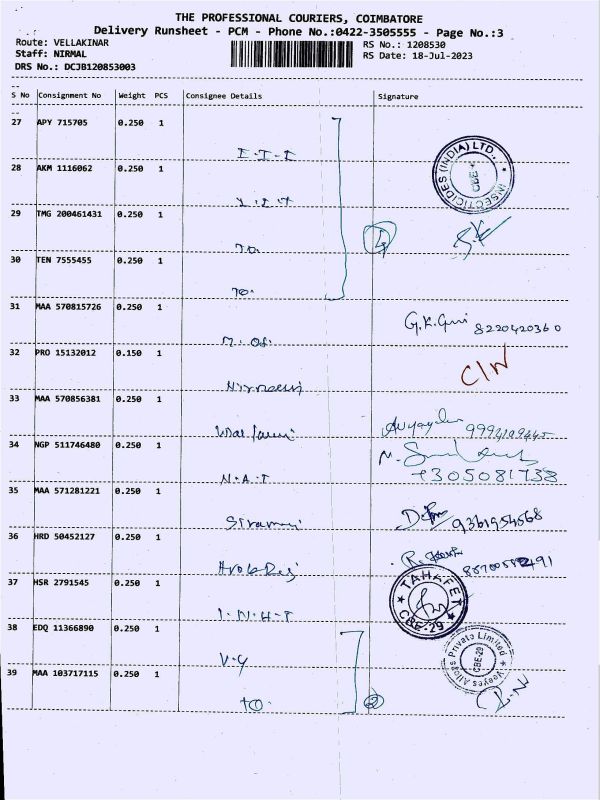 THE PROFESSIONAL COURIERS, COIMBATORE
Delivery Runsheet - PCM - Phone No.:0422-3505555 - Page No.:3
Route: VELLAKINAR
RS No.: 1208530
Staff: NIRMAL
RS Date: 18-Jul-2023
DRS No.: DCJB120853003
S No Consignment No Weight PCS Consignee Details Signature
27 APY 715705 0.250 1
I.I.I
INSECTICIDES (INDIA) LTD., CBE
28 AKM 1116062 0.250 1
29 TMG 200461431 0.250 1
To.
4
30 TEN 7555455 0.250 1
To.
31 MAA 570815726 0.250 1
8220420360
32 PRO 15132012 0.150 1
33 MAA 570856381 0.250 1
34 NGP 511746480 0.250 1
N.A.T
35 MAA 571281221 0.250 1
9361954568
36 HRD 50452127 0.250 1
37 HSR 2791545 0.250 1
I.N.H.T
TAHAFET CBE-29
38 EDQ 11366890 0.250 1
V.G
Veeyes Alloys Private Limited CBE-29
39 MAA 103717115 0.250 1
to.
2